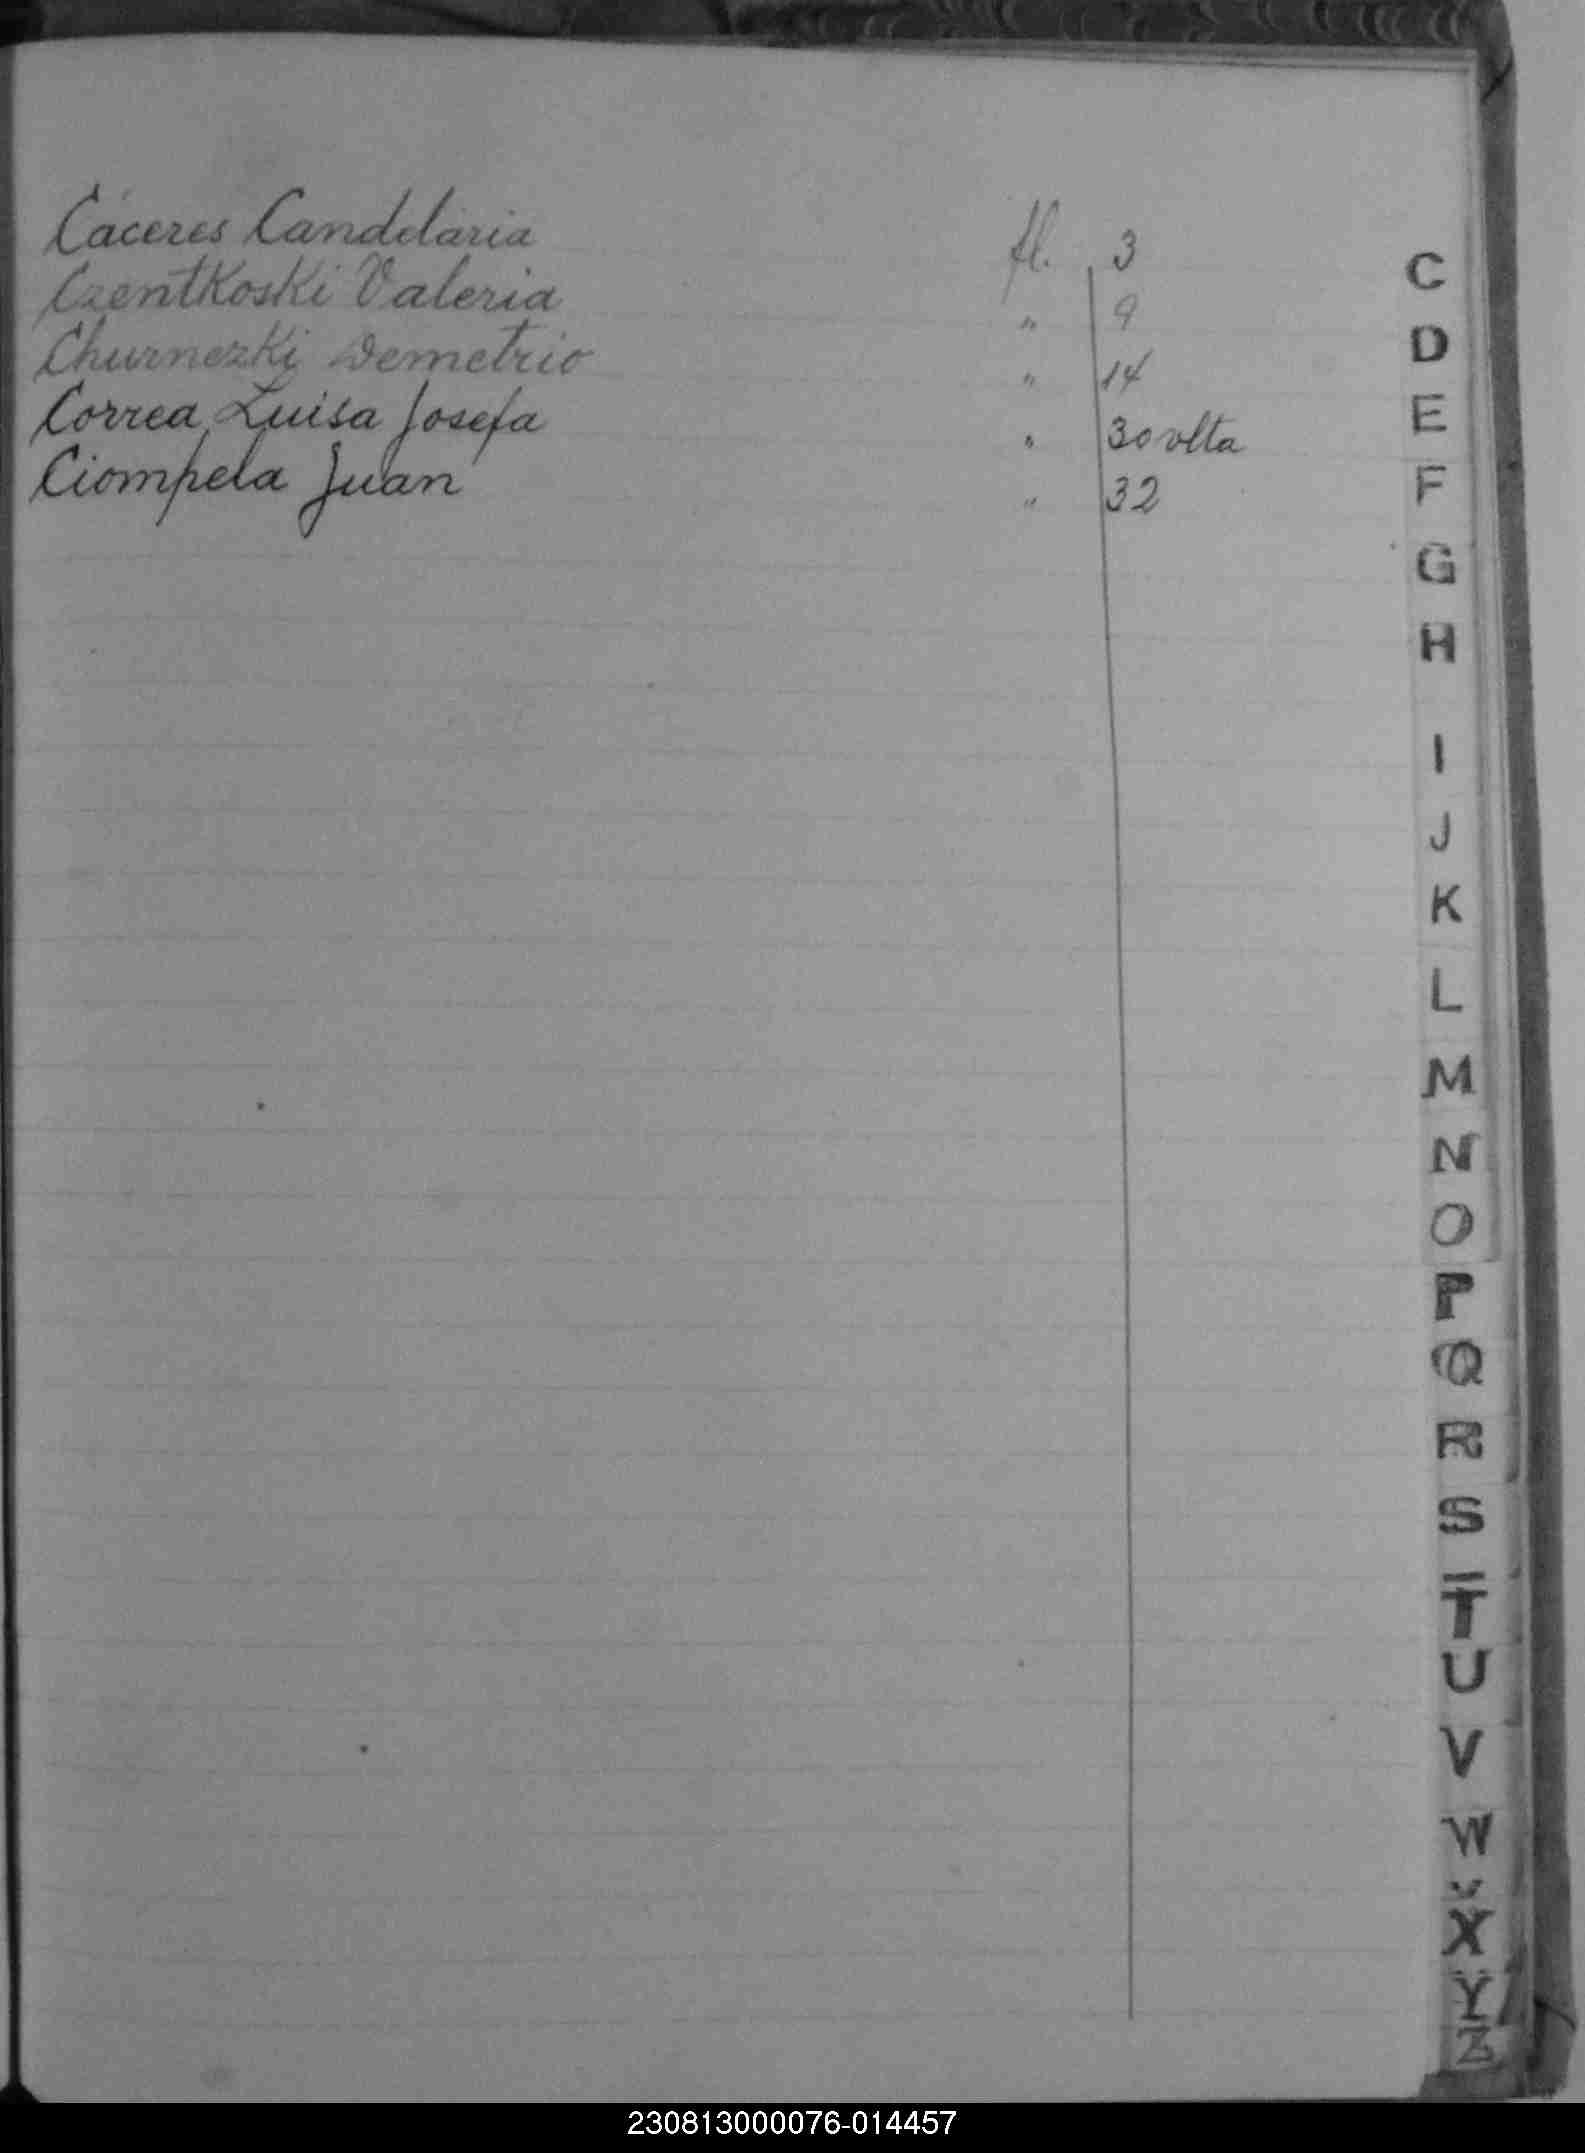 Cáceres Candelaria fl. 3
Czentkoski Valeria " 9
Churnezki Demetrio " 14
Correa Luisa Josefa " 30 vlta
Ciompela Juan " 32
C
D
E
F
G
H
I
J
K
L
M
N
O
P
Q
R
S
T
U
V
W
X
Y
Z
230813000076-014457